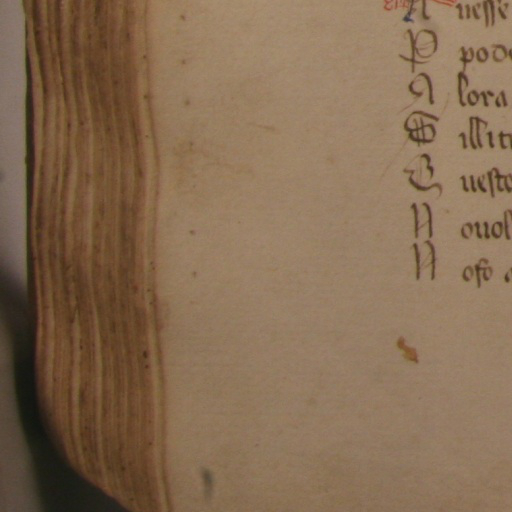 A uesse
P pode
A lora
S illit
E uesto
N ouol
N ofo